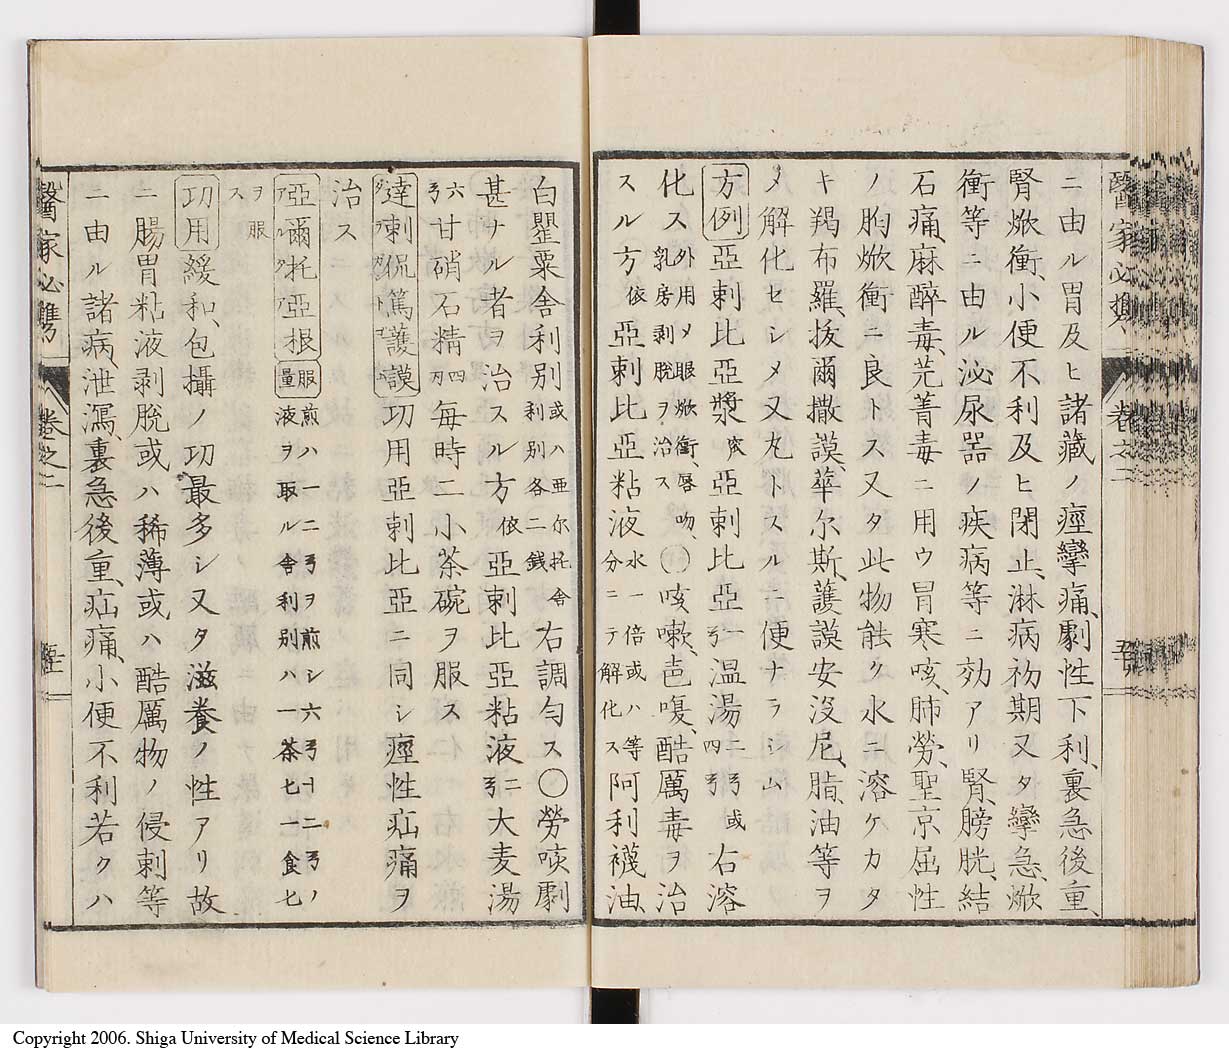 醫家必携 卷之二
ニ由ル胃及ヒ諸藏ノ痙攣痛、劇性下利、裏急後重、
腎焮衝、小便不利及ヒ閉止、淋病初期又タ攣急、焮
衝等ニ由ル泌尿器ノ疾病等ニ効アリ腎、膀胱、結
石痛、麻醉毒、芫菁毒ニ用ウ冒寒、咳、肺勞、聖京屈性
ノ胸焮衝ニ良トス又タ此物能ク水ニ溶ケカタ
キ羯布羅、拔爾撒謨、華尔斯、護謨安没尼、脂、油等ヲ
メ解化セシメ又丸トスルニ便ナラシム
方例 亞剌比亞漿 亞剌比亞弓一温湯二弓或四弓右溶
化ス外用メ眼焮衝、唇吻、乳房剥脱ヲ治ス 咳嗽、嗄、酷厲毒ヲ治
スル方 依亞剌比亞粘液水一倍或ハ等分ニテ解化ス阿利襪油、
白罌粟舎利別或ハ亜尔托舎利別各二銭右調匀ス〇勞咳劇
甚ナル者ヲ治スル方 依亞剌比亞粘液二弓大麦湯
六弓甘硝石精四刄毎時二小茶碗ヲ服ス
達剌侃篤護謨 功用亞剌比亞ニ同シ痙性疝痛ヲ
治ス
亞爾托亞根 服量 煎ハ一二弓ヲ煎シ六弓十二弓ノ液ヲ取ル舎利別ハ一茶匕一食匕
ヲ服ス
功用 緩和、包攝ノ功最多シ又タ滋養ノ性アリ故
ニ腸胃粘液剥脱或ハ稀薄或ハ酷厲物ノ侵剌等
ニ由ル諸病、泄瀉、裏急後重、疝痛、小便不利若クハ
醫家必携 卷之二
Copyright 2006. Shiga University of Medical Science Library